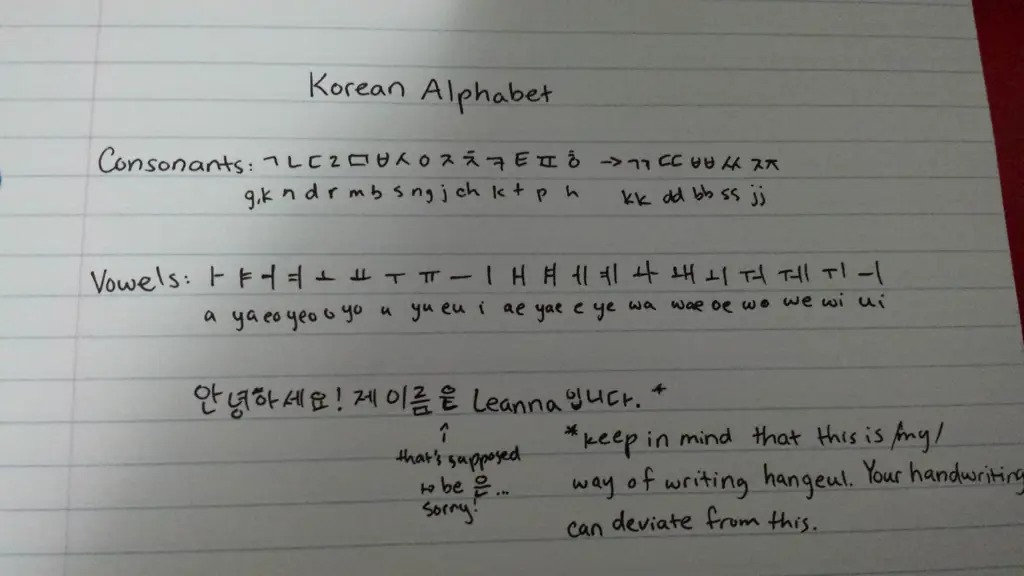 Korean Alphabet
Consonants: ㄱ ㄴ ㄷ ㄹ ㅁ ㅂ ㅅ ㅇ ㅈ ㅊ ㅋ ㅌ ㅍ ㅎ → ㄲ ㄸ ㅃ ㅆ ㅉ
g,k n d r m b s ng j ch k t p h kk dd bb ss jj
Vowels: ㅏ ㅑ ㅓ ㅕ ㅗ ㅛ ㅜ ㅠ ㅡ ㅣ ㅐ ㅒ ㅔ ㅖ ㅘ ㅙ ㅚ ㅝ ㅞ ㅟ ㅢ
a ya eo yeo o yo u yu eu i ae yae e ye wa wae oe wo we wi ui
안녕하세요! 제 이름은 Leanna입니다. *
↑
that's supposed
to be 은...
sorry!
*keep in mind that this is /my/
way of writing hangeul. Your handwriting
can deviate from this.